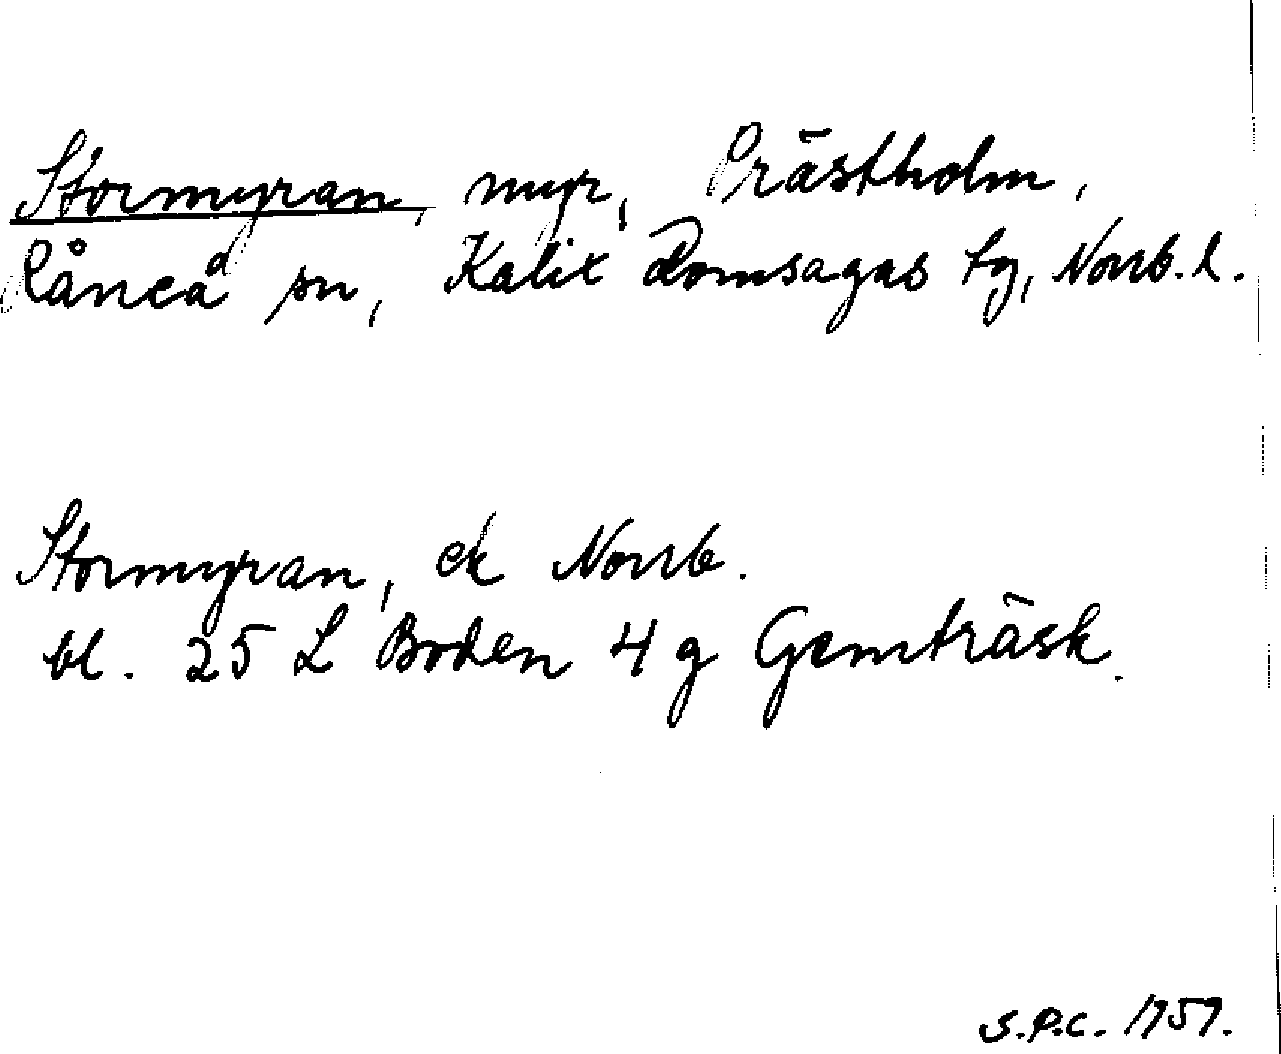 Stormyran, myr, Prästholm,
Råneå sn, Kalix Domsagas tg, Norrb. l.
Stormyran, ek Norrb.
bl. 25 L Boden 4 g Gemträsk.
S.P.C. 1959.